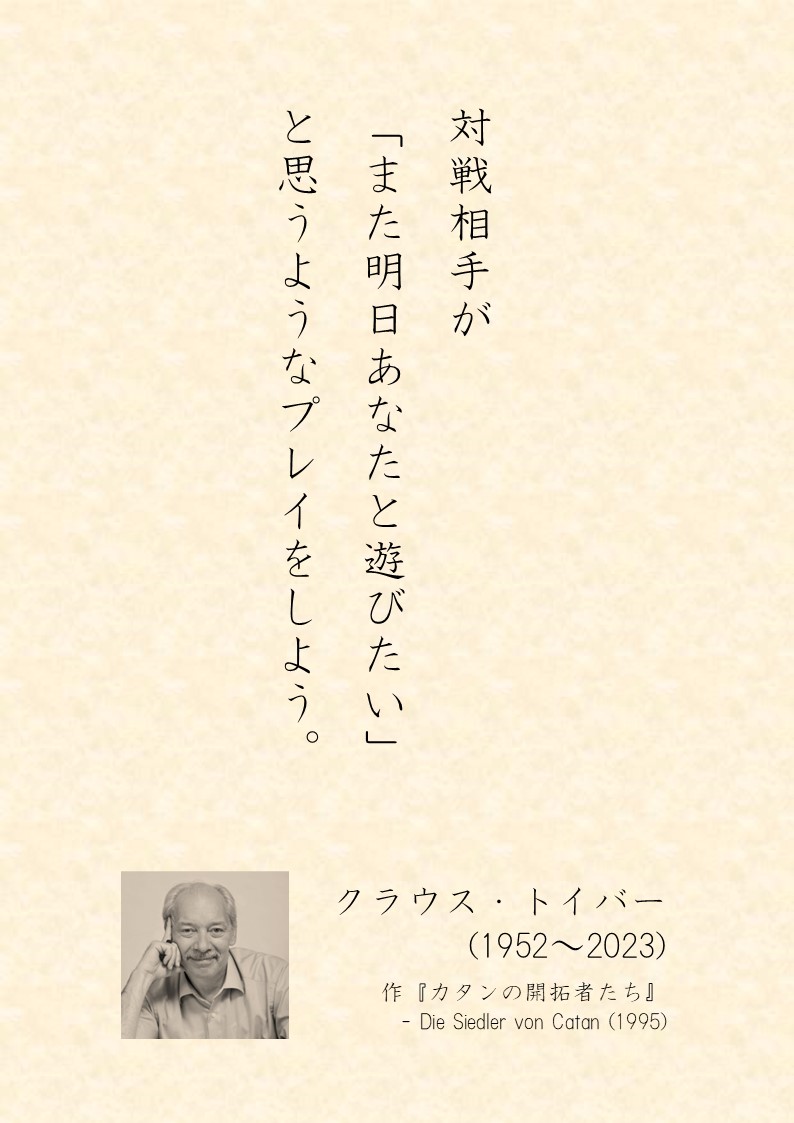 対戦相手が
「また明日あなたと遊びたい」
と思うようなプレイをしよう。
クラウス・トイバー
(1952～2023)
作『カタンの開拓者たち』
- Die Siedler von Catan (1995)